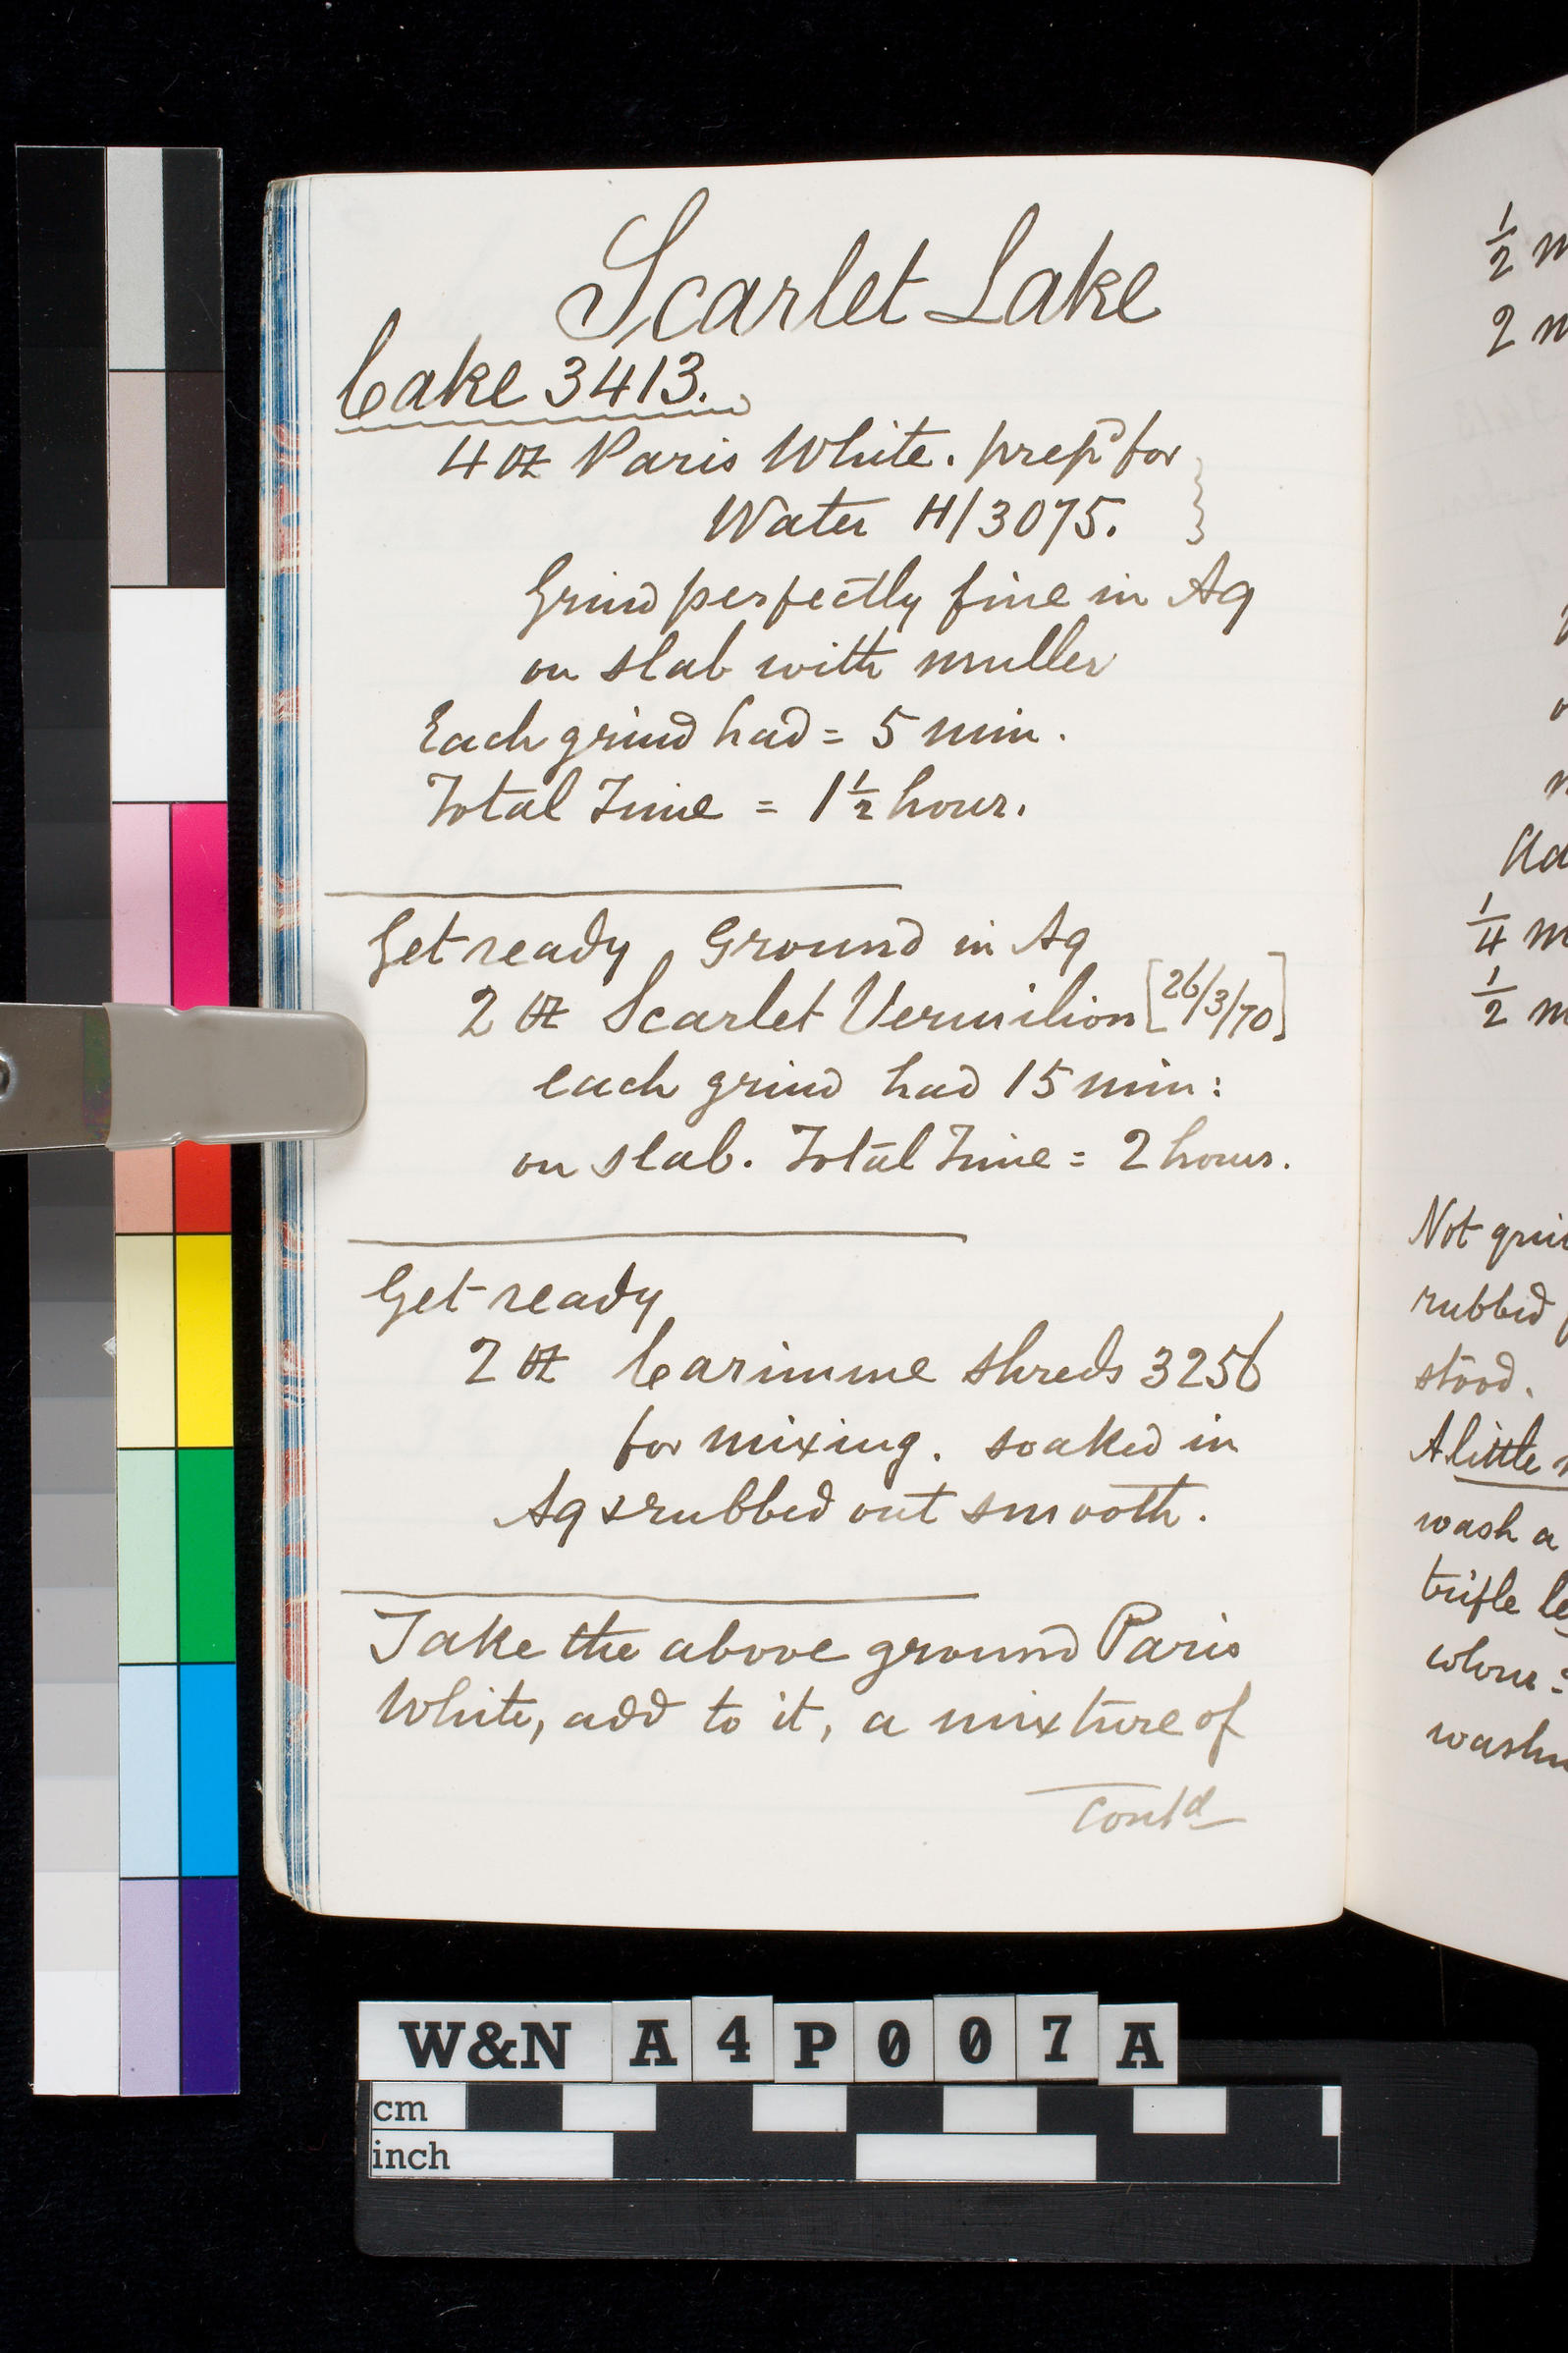 Scarlet Lake
Cake 3413.
4 oz Paris White. prepd for
Water H/3075.
Grind perfectly fine in Aq
on slab with muller
Each grind had = 5 min.
Total Time = 1½ hour.
Get ready Ground in Aq
2 oz Scarlet Vermilion [26/3/70]
each grind had 15 min:
on slab. Total Time = 2 hours.
Get ready
2 oz Carimme shreds 3256
for mixing. soaked in
Aq & rubbed out smooth.
Take the above ground Paris
White, add to it, a mixture of
Contd
½ m
2 m
Ad
¼ m
½ m
Not grin
rubbed
stood.
A little
wash a
trifle le
colour
washn
W&N A4P007A
cm
inch